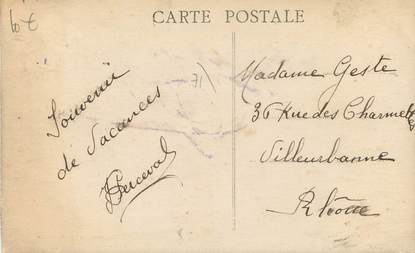 CARTE POSTALE
60 F
71)
Souvenir
de Vacances
Perceval
Madame Geste
36 Rue des Charmettes
Villeurbanne
Rhône